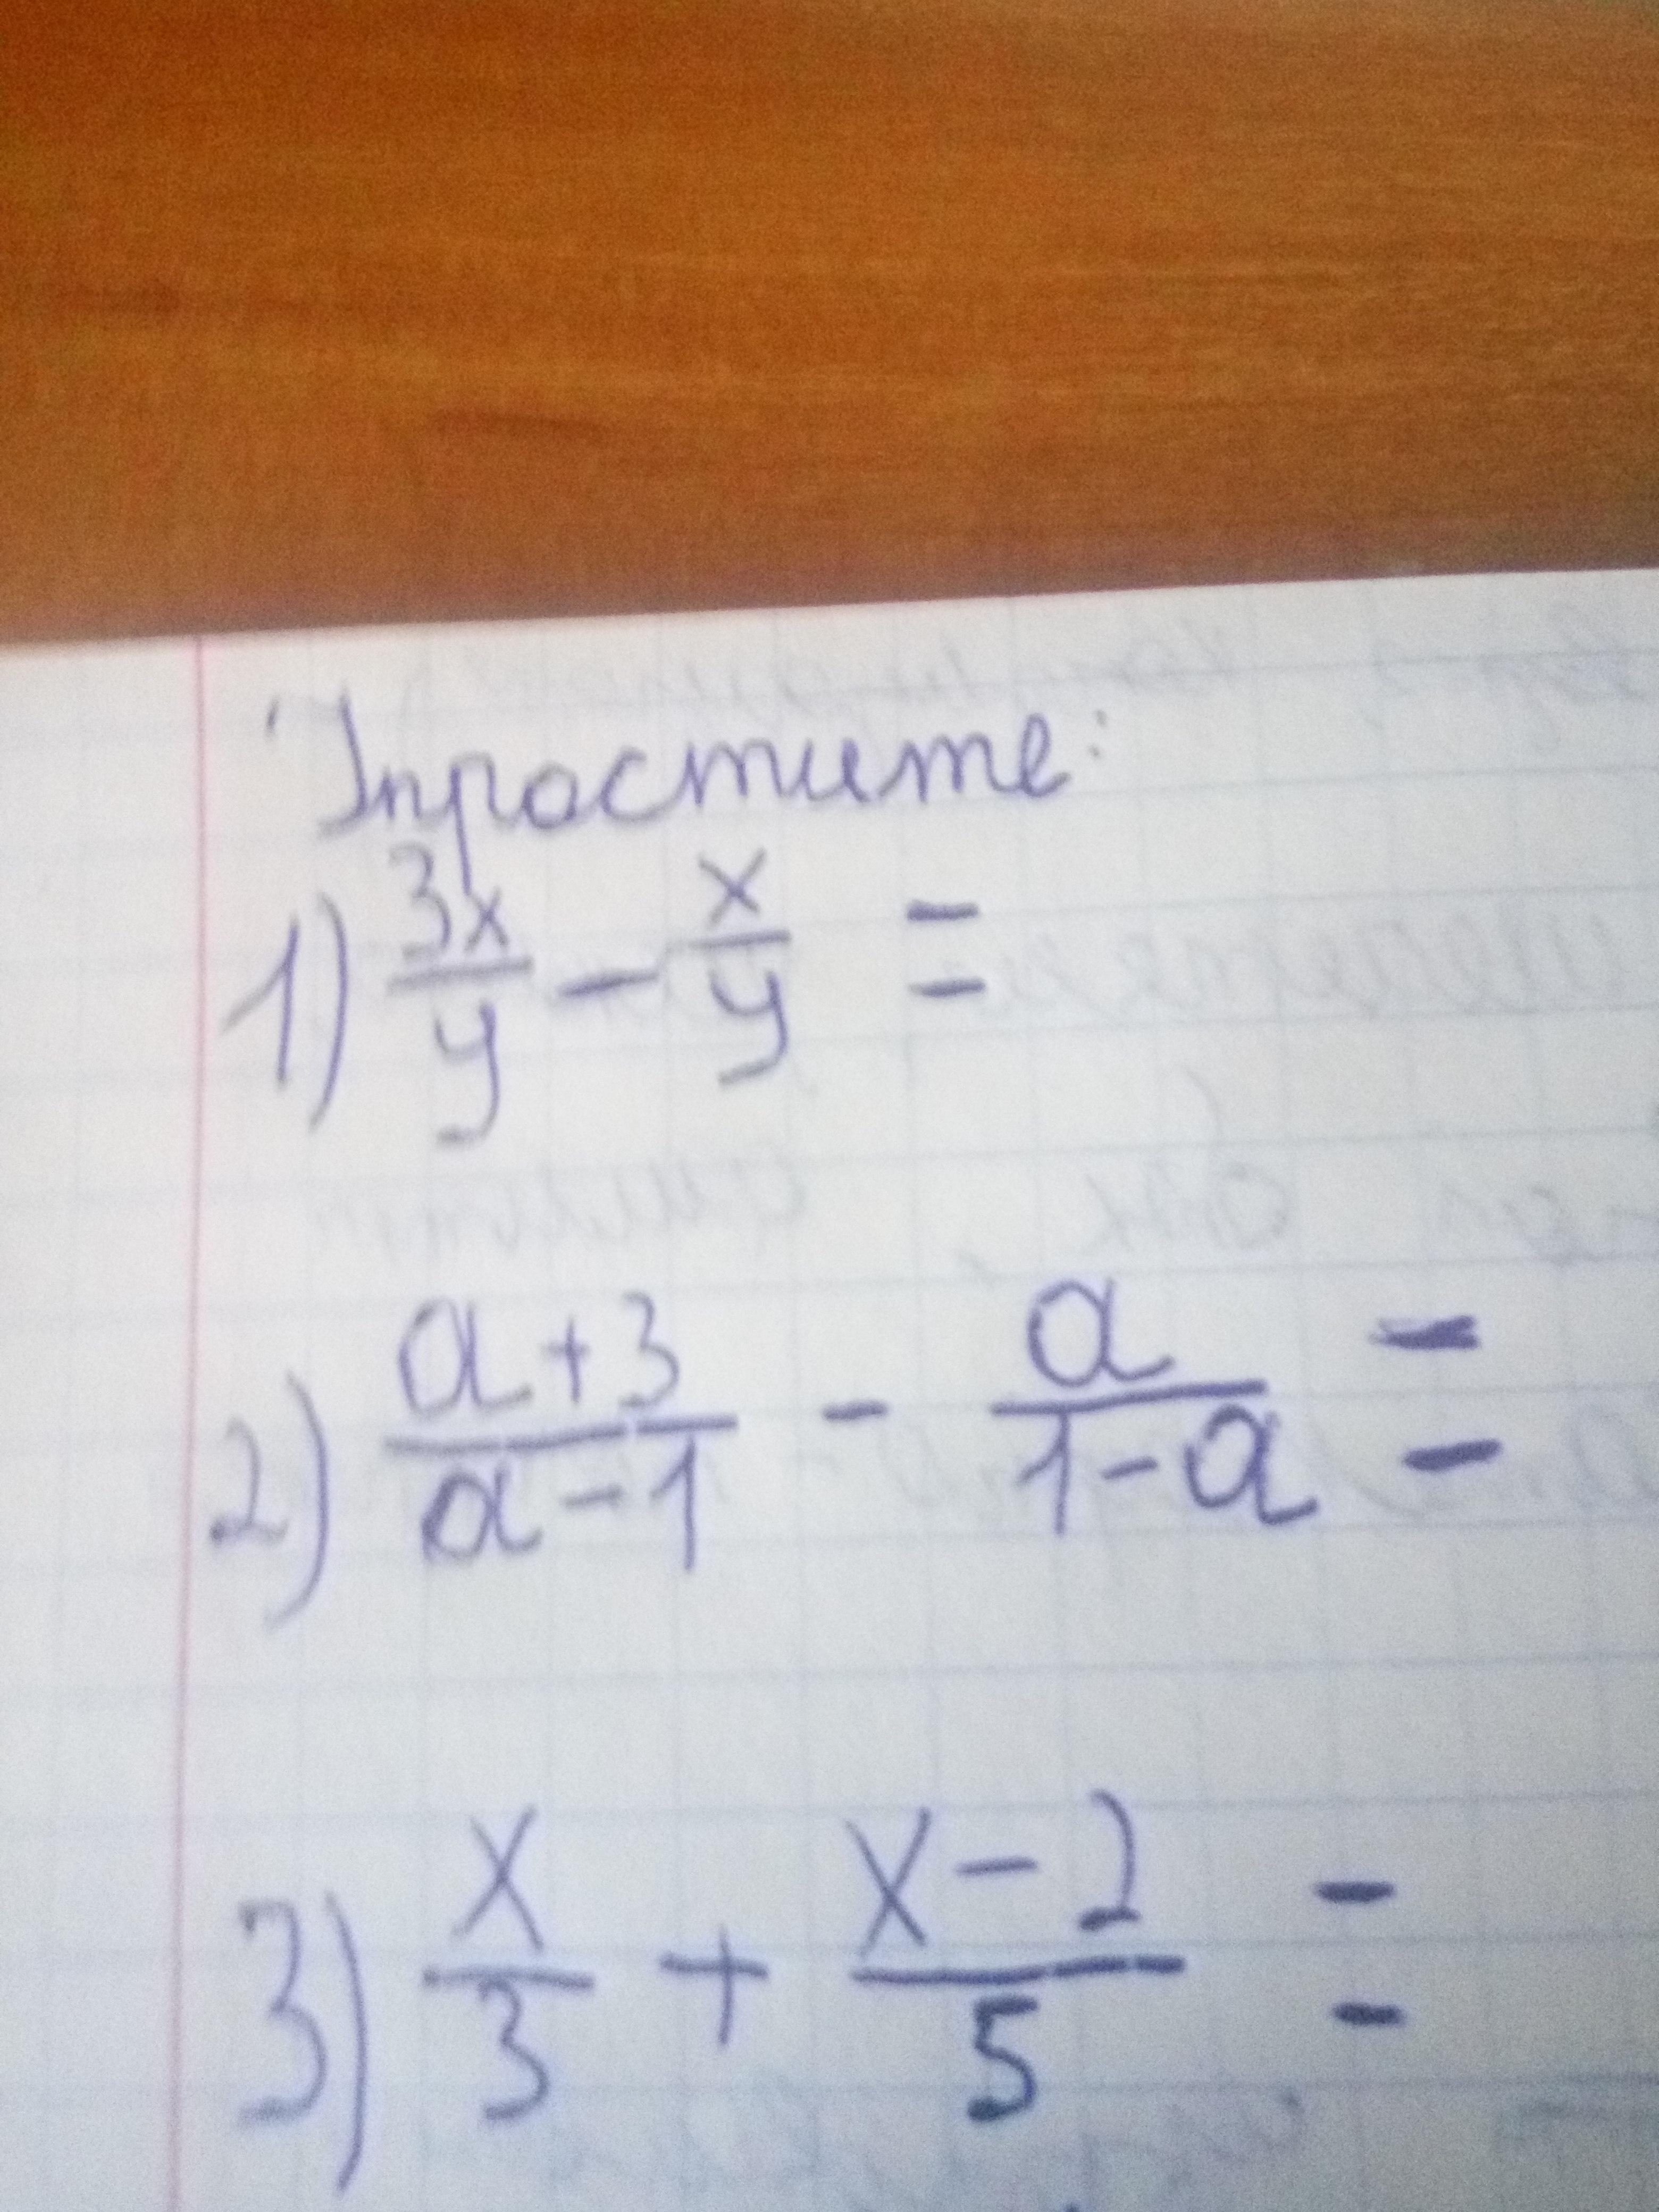 Упростите:
1) 3x/y - x/y =
2) a+3/a-1 - a/1-a =
3) x/3 + x-2/5 =